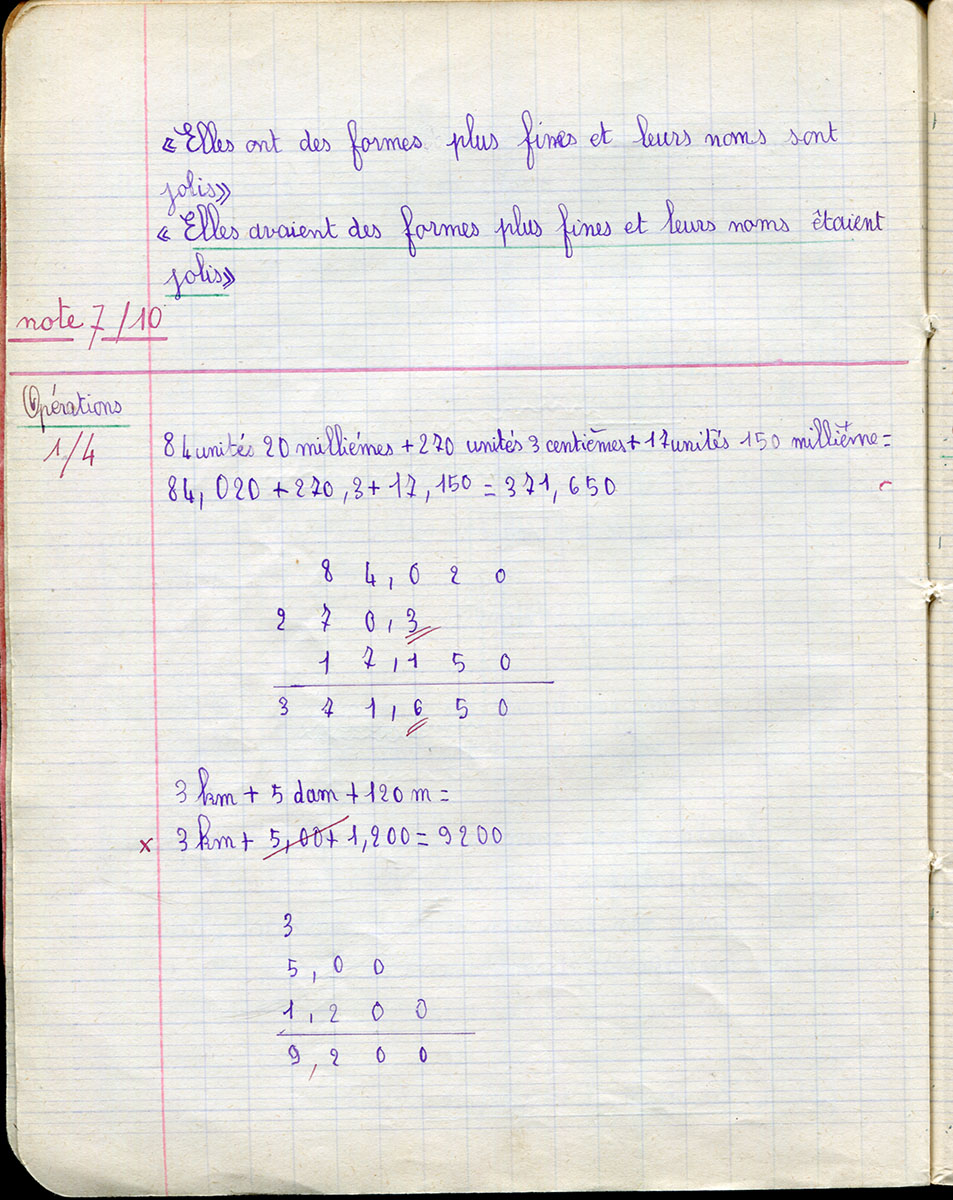 « Elles ont des formes plus fines et leurs noms sont
jolis»
« Elles avaient des formes plus fines et leurs noms êtaient
jolis»
note 7/10
Opérations
1/4
84 unités 20 milliémes + 270 unités 3 centièmes + 17 unités 150 millième =
84, 020 + 270,3 + 17,150 = 371,650
8 4, 0 2 0
2 7 0, 3
1 7, 1 5 0
3 7 1, 6 5 0
3 km + 5 dam + 120 m =
x 3 km + 5,00 + 1,200 = 9200
3
5, 0 0
1, 2 0 0
9, 2 0 0